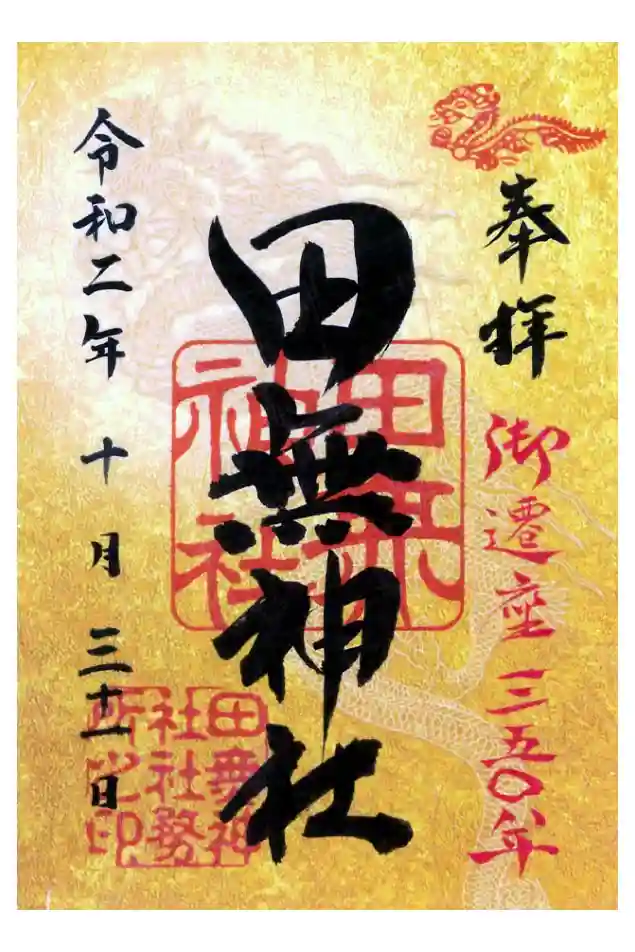 奉拝
御遷座三五〇年
田無神社
令和二年 十月 三十一日
田無神社
田無神
社社務
所之印